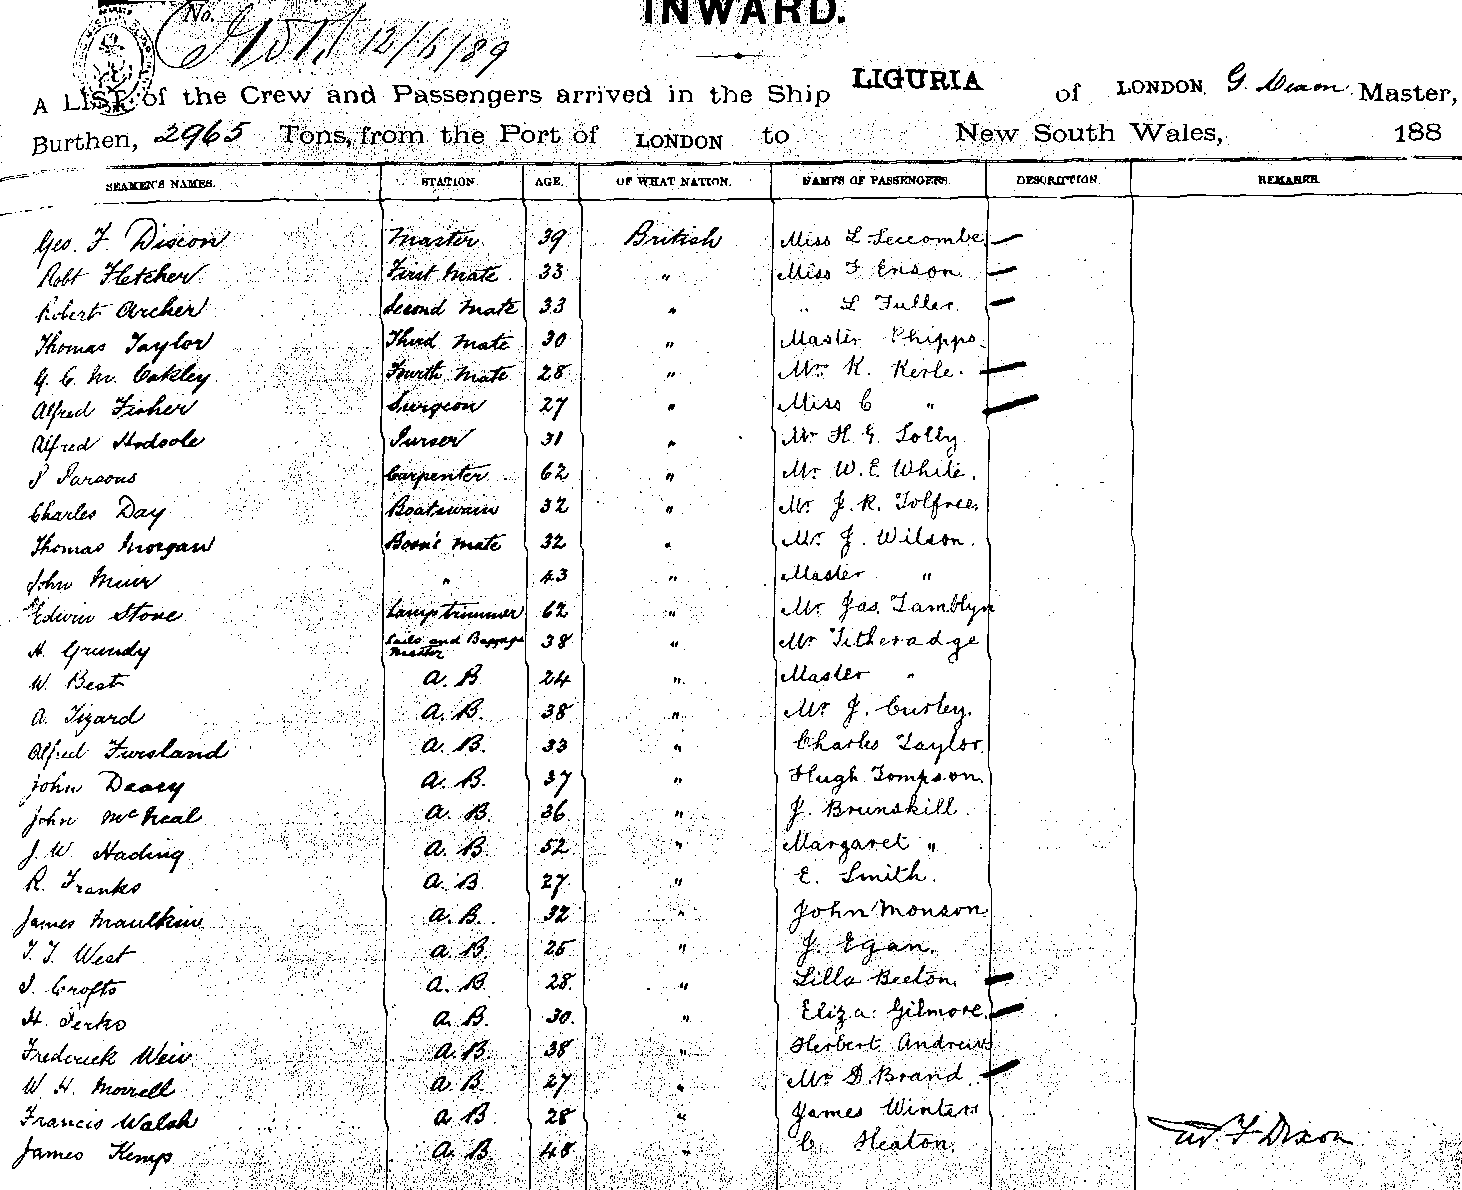 INWARD.
No.
12/6/89
A LIST of the Crew and Passengers arrived in the Ship LIGURIA of LONDON G. Dixon Master,
Burthen, 2965 Tons, from the Port of LONDON to New South Wales, 188
SEAMEN'S NAMES. STATION. AGE. OF WHAT NATION. NAMES OF PASSENGERS. DESCRIPTION. REMARKS.
Geo. F. Dixon Master 39 British Miss L Seccombe
Robt Fletcher First Mate 33 " Miss F Enson
Robert Archer Second Mate 33 " " L Fuller
Thomas Taylor Third Mate 30 " Master Phipps
G. E. M. Oakley Fourth Mate 28 " Mr. K. Kerle.
Alfred Fisher Surgeon 27 " Miss C "
Alfred Hodsole Purser 31 " Mr H. G. Lolly
Parsons Carpenter 62 " Mr. W. E. White.
Charles Day Boatswain 32 " Mr. J. R. Tolfree.
Thomas Morgan Bosn's Mate 32 " Mr. J. Wilson.
John Muir " 43 " Master "
Edwin Stone Lamptrimmer 62 " Mr. Jas. Tamblyn
A. Grundy Sails and Baggage Master 38 " Mr Titheradge
W. Best A. B. 24 " Master "
A. Tizard A. B. 38 " Mr J. Curley.
Alfred Fursland A. B. 33 " Charles Taylor
John Deary A. B. 37 " Hugh Tompson
John McNeal A. B. 36 " J. Brunskill
J. W. Hading A. B. 52 " Margaret "
R. Franks A. B. 27 " E. Smith.
James Maulkin A. B. 32 " John Monson
T. J. West A. B. 25 " J. Egan.
Crofts A. B. 28 " Lilla Beeton
H. Perks A. B. 30. " Eliza Gilmore
Frederick Weir A. B. 38 " Herbert Andrews
W. H. Morrell A. B. 27 " Mr D. Brand
Francis Walsh A. B. 28 " James Winters
James Kemp A. B. 48 " C Heaton.
F Dixon